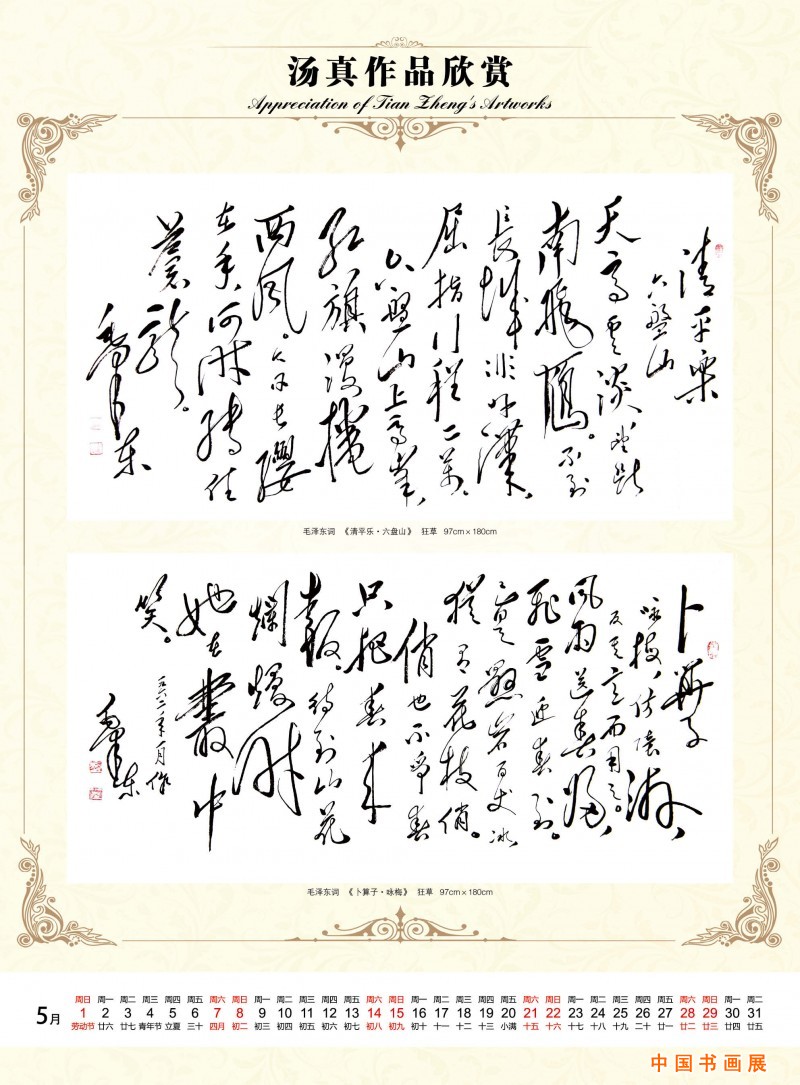 汤真作品欣赏
Appreciation of Tian Zheng's Artworks
清平樂
六盤山
天高雲淡,望断
南飛雁。不到
長城非好漢。
屈指行程二萬。
六盤山上高峯,
紅旗漫捲
西風。今日長纓
在手,何時縛住
蒼龍。
毛泽东
毛泽东词 《清平乐·六盘山》 狂草 97cm×180cm
卜算子
咏梅,陸游,
反其意而用之。
風雨送春歸,
飛雪迎春到。
已是懸岩百丈冰
猶有花枝俏。
俏也不爭春
只把春来
報。待到山花
爛熳時
她在叢中
笑。
毛泽东
毛泽东词 《卜算子·咏梅》 狂草 97cm×180cm
5月
周日 周一 周二 周三 周四 周五 周六 周日 周一 周二 周三 周四 周五 周六 周日 周一 周二 周三 周四 周五 周六 周日 周一 周二 周三 周四 周五 周六 周日 周一 周二
1 2 3 4 5 6 7 8 9 10 11 12 13 14 15 16 17 18 19 20 21 22 23 24 25 26 27 28 29 30 31
劳动节 廿六 廿七 青年节 立夏 三十 四月 初二 初三 初四 初五 初六 初七 初八 初九 初十 十一 十二 十三 小满 十五 十六 十七 十八 十九 二十 廿一 廿二 廿三 廿四 廿五
中国书画展